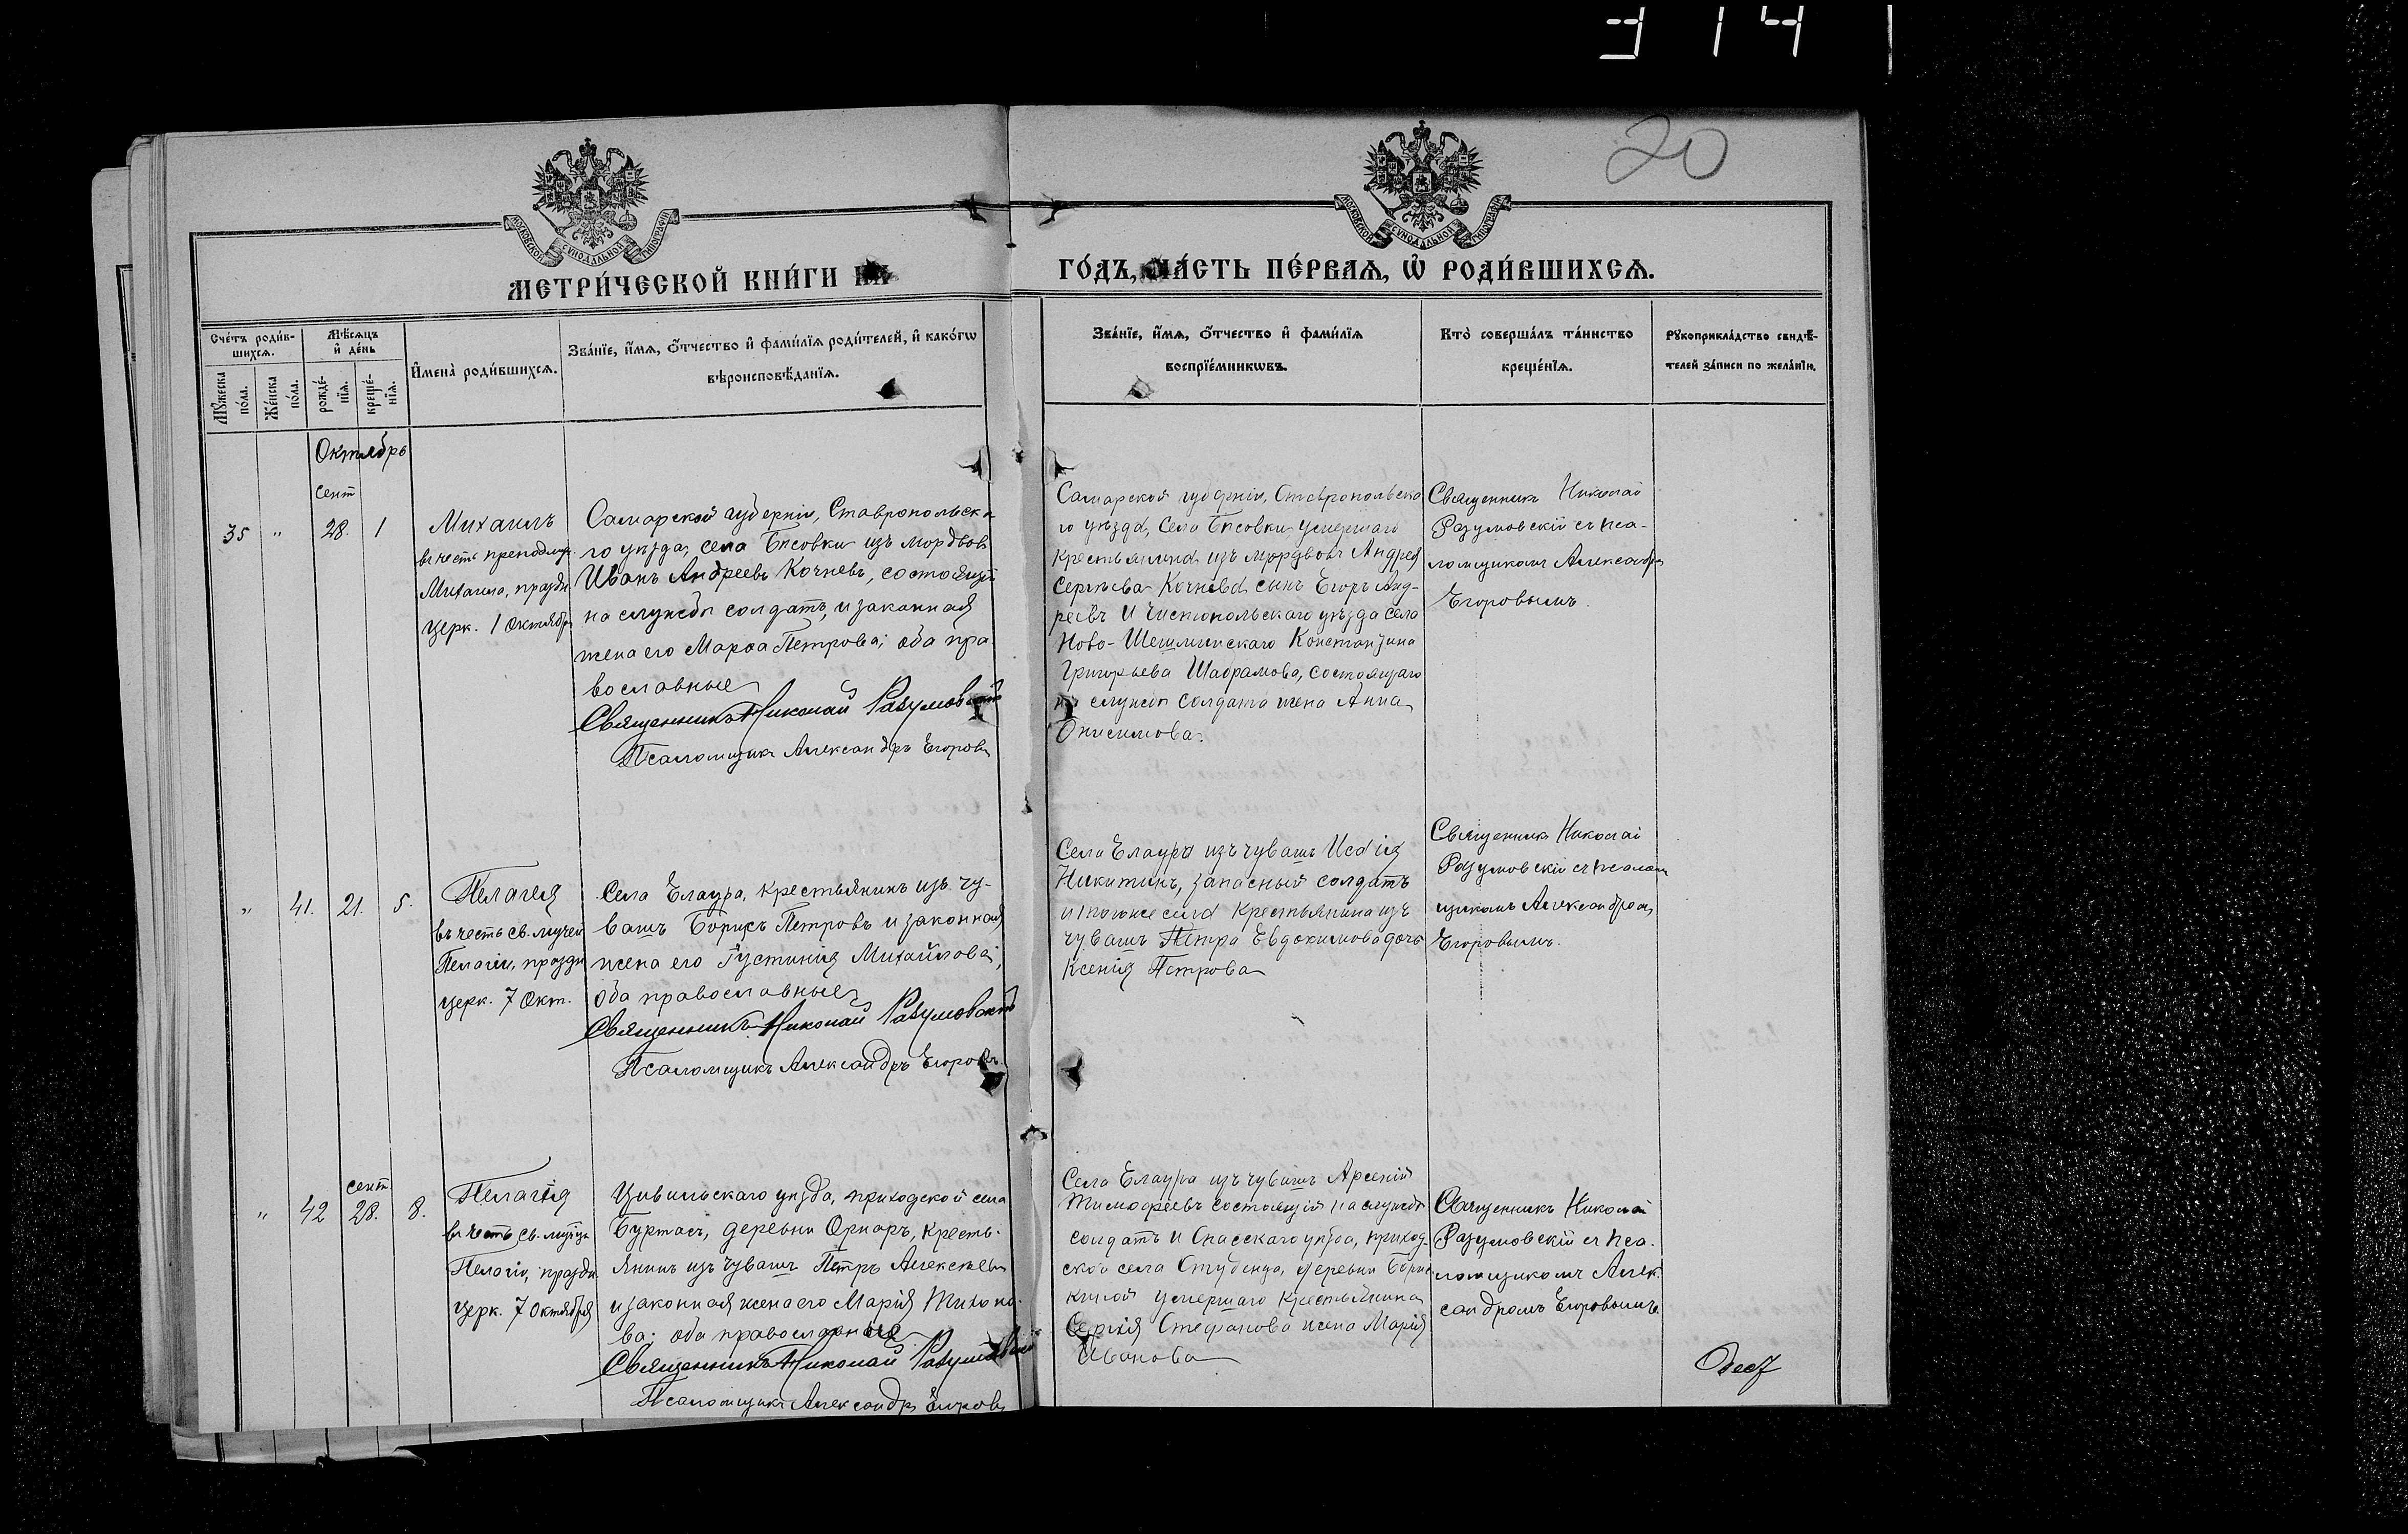 314
20
МОСКОВСКОЙ СѴНОДАЛЬНОЙ ТИПОГРАФІИ
МОСКОВСКОЙ СѴНОДАЛЬНОЙ ТИПОГРАФІИ
МЕТРИ́ЧЕСКОЙ КНИ́ГИ НА
ГО́ДЪ, ЧА́СТЬ ПЕ́РВАѦ, Ѡ҆ РОДИ́ВШИХСѦ.
Сче́тъ роди́в-
шихсѧ.
Мꙋ́жеска
по́ла.
Же́нска
по́ла.
Мѣ́сѧцъ
и҆ де́нь
рожде́-
нїѧ.
креще́-
нїѧ.
И҆мена̀ роди́вшихсѧ.
Зва́нїе, и҆́мѧ, ѻ҆́тчество и҆ фами́лїѧ роди́телей, и҆ како́гѡ
вѣроисповѣ́данїѧ.
Зва́нїе, и҆́мѧ, ѻ҆́тчество и҆ фами́лїѧ
воспрїе́мникѡвъ.
Кто̀ соверша́лъ та́инство
креще́нїѧ.
Рꙋкоприкла́дство свидѣ́-
телей за́писи по жела́нїю.
Октябрь
сент
35 " 28. 1
Михаилъ
въ честь преподмуч.
Михаила, праздн.
церк. 1 Октябр
Самарской губерніи, Ставропольска
го уѣзда, села Бисовки изъ мордвовъ
Иванъ Андреевъ Кочневъ, состоящій
на службѣ солдатъ, и законная
жена его Марѳа Петрова; оба пра
вославные
Священникъ Николай Разумовскій
Псаломщикъ Александръ Егоровъ
Самарской губерніи, Ставропольска
го уѣзда, села Бисовки умершаго
крестьянина изъ мордвовъ Андрея
Сергѣева Кочнева сынъ Егоръ Анд-
реевъ и Чистопольскаго уѣзда села
Ново-Шешминскаго Константина
Григорьева Шабрамова, состоящаго
на службѣ солдата жена Анна
Онисимова.
Священникъ Николай
Разумовскій съ пса-
ломщикомъ Александр
Егоровымъ.
" 41. 21. 5.
Пелагея
въ честь св. мучен
Пелагіи, праздн
церк. 7 Окт.
Села Елаура, крестьянинъ изъ чу-
вашъ Борисъ Петровъ и законная
жена его Іустинія Михайлова;
оба православные
Священникъ Николай Разумовскій
Псаломщикъ Александръ Егоровъ.
Села Елаура изъ чувашъ Исаія
Никитинъ, запасный солдатъ
и тогоже села крестьянина изъ
чувашъ Петра Евдокимова дочь
Ксенія Петрова
Священникъ Николай
Разумовскій съ псалом
щикомъ Александром
Егоровымъ.
сент
" 42 28. 8.
Пелагія
въ честь св. мучц
Пелагіи, праздн.
церк. 7 Октября
Цивильскаго уѣзда, приходской села
Буртасъ, деревни Орнаръ, кресть-
янинъ изъ чувашъ Петръ Алексѣевъ
и законная жена его Марія Тихоно-
ва; оба православные
Священникъ Николай Разумовскій
Псаломщикъ Александръ Егоровъ
Села Елаура изъ чувашъ Арсеній
Тимоѳеевъ состоящій на службѣ
солдатъ и Спасскаго уѣзда, приход-
ской села Студенца, деревни
умершаго крестьянина
Сергія Стефанова жена Марія
Иванова
Священникъ Николай
Разумовскій съ пса-
ломщикомъ Алек-
сандромъ Егоровымъ